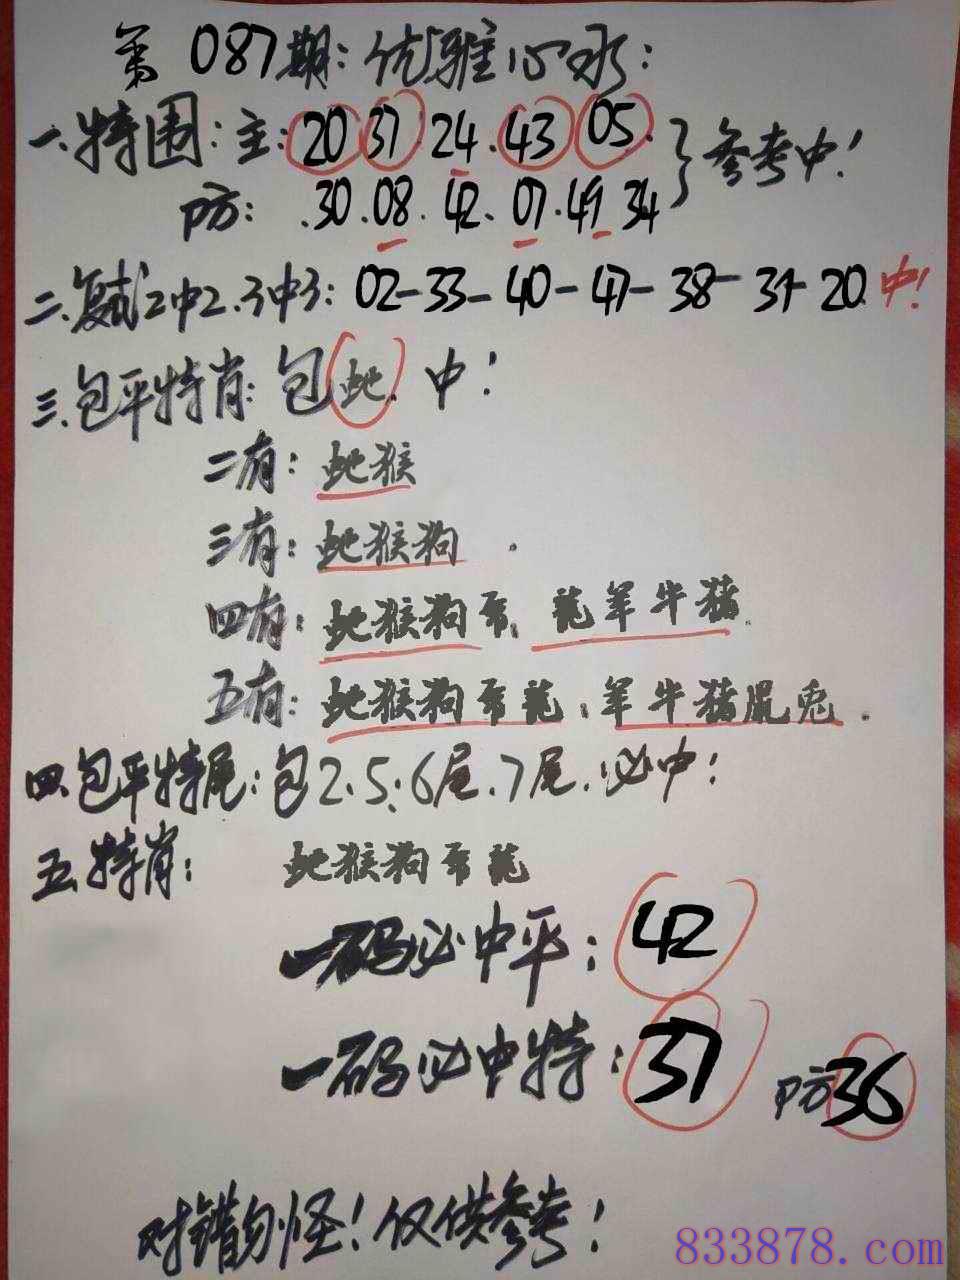 第087期：优雅心水：
一.特围：主：20 37 24.43 05.
防：.30.08.42.07.49 34
}参考中！
二.复试2中2.3中3：02-33-40-47-38-31-20.中！
三.包平特肖：包蛇.中！
二有：蛇猴
三有：蛇猴狗.
四有：蛇猴狗虎.龍羊牛猪.
五有：蛇猴狗虎龍.羊牛猪鼠兔.
四.包平特尾：包2.5.6尾.7尾.必中！
五.特肖：蛇猴狗虎龍
一码必中平：42
一码必中特：37 防36
对错勿怪！仅供参考！
833878.com